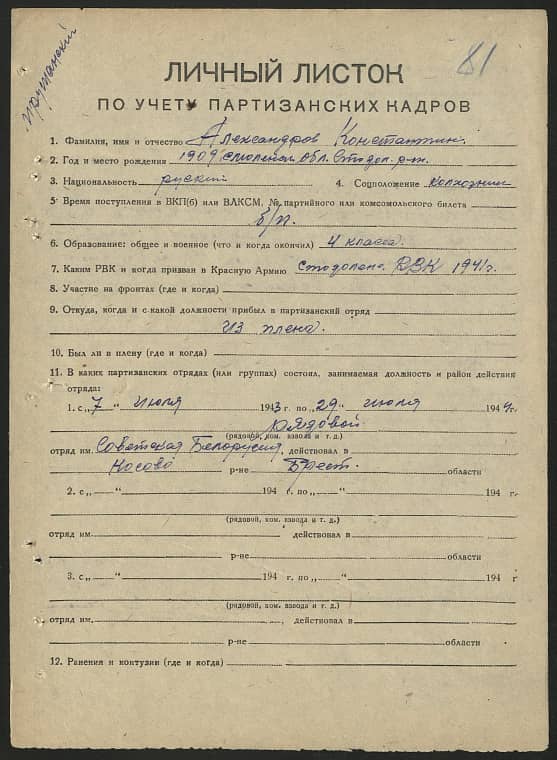 Пружанский
81
ЛИЧНЫЙ ЛИСТОК
ПО УЧЕТУ ПАРТИЗАНСКИХ КАДРОВ
1. Фамилия, имя и отчество Александров Константин.
2. Год и место рождения 1909 Смоленск. обл. Стодол. р-н.
3. Национальность руский 4. Соцположение колхозник
5. Время поступления в ВКП(б) или ВЛКСМ, № партийного или комсомольского билета
б/п.
6. Образование: общее и военное (что и когда окончил) 4 класса.
7. Каким РВК и когда призван в Красную Армию Стодоленс. РВК 1941 г.
8. Участие на фронтах (где и когда)
9. Откуда, когда и с какой должности прибыл в партизанский отряд
из плена.
10. Был ли в плену (где и когда)
11. В каких партизанских отрядах (или группах) состоял, занимаемая должность и район действия
отряда:
1. с „7 “ июля 1943 г. по „29 „ июля 1944 г.
рядовой
(рядовой, ком. взвода и т. д.)
отряд им. Советская Белорусия, действовал в
Косово р-не Брест. области
2. с „ “ 194 г. по „ “ 194 г.
(рядовой, ком. взвода и т. д.)
отряд им. действовал в
р-не области
3. с „ “ 194 г. по „ “ 194 г
(рядовой, ком. взвода и т. д.)
отряд им. , действовал в
р-не области
12. Ранения и контузии (где и когда)